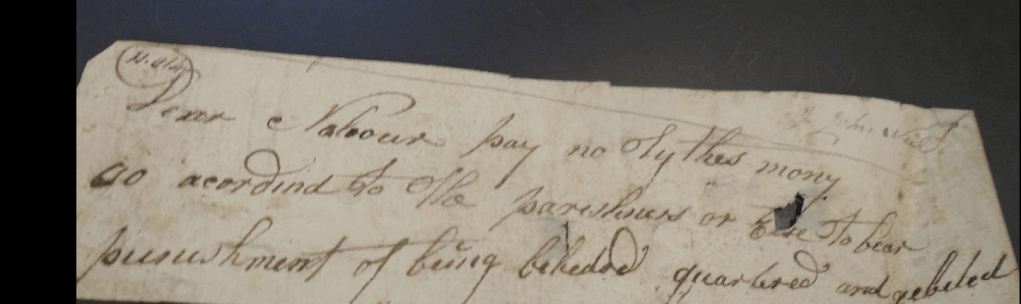 Dear Nabour pay no Tythes mony
Go acordind to the parishners or Else to bear
punishment of being beheded quartered and gebeted